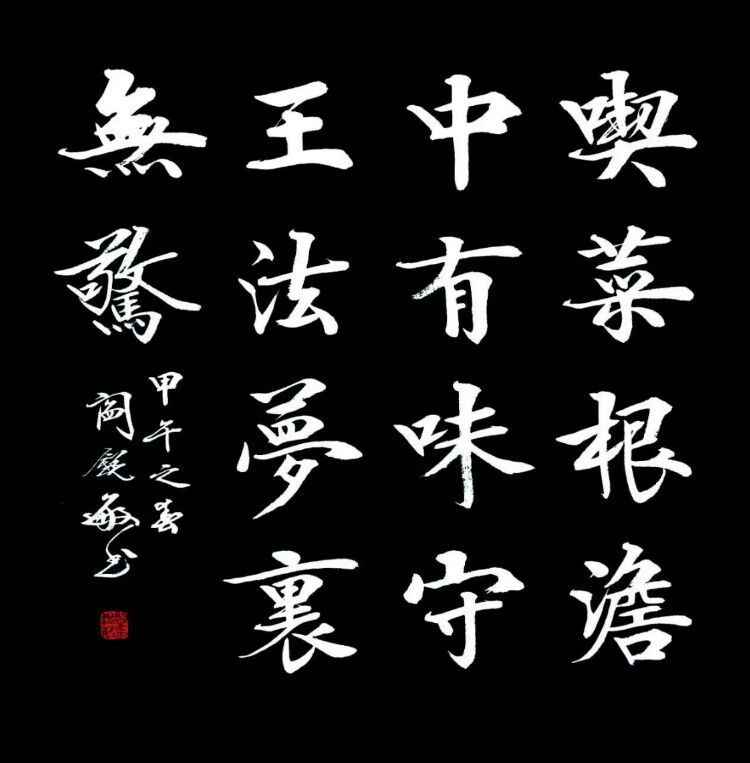 喫菜根澹
中有味守
王法夢裏
無驚
甲午之春
閻銳敏书